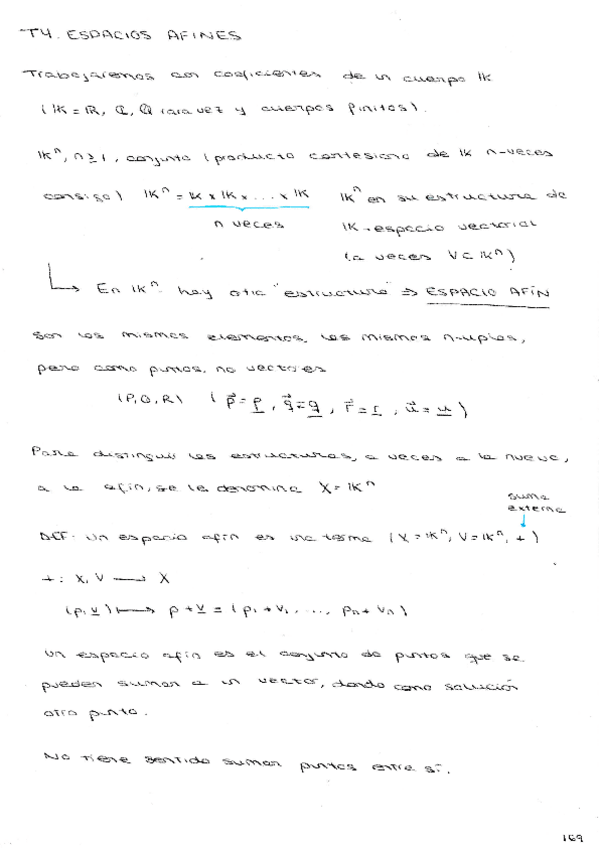 T4. ESPACIOS AFINES
Trabajaremos con coeficientes de un cuerpo IK
(IK = IR, C, Q rara vez y cuerpos finitos).
IKⁿ, n ≥ 1, conjunto (producto cartesiano de IK n-veces
consigo) IKⁿ = IK x IK x ... x IK IKⁿ en su estructura de
n veces IK-espacio vectorial
(a veces V = IKⁿ)
↳ En IKⁿ hay otra "estructura" ⇒ ESPACIO AFÍN
son los mismos elementos, las mismas n-uplas,
pero como puntos, no vectores
(P, Q, R) (p⃗ = p, q⃗ = q, r⃗ = r, u⃗ = u)
Para distinguir las estructuras, a veces a la nueva,
a la afín, se le denomina X = IKⁿ
suma
externa
DEF: Un espacio afín es una terna (X = IKⁿ, V = IKⁿ, +)
+: X, V → X
(p, v) ↦ p + v = (p₁ + v₁, ..., pₙ + vₙ)
Un espacio afín es el conjunto de puntos que se
pueden sumar a un vector, dando como solución
otro punto.
No tiene sentido sumar puntos entre sí.
169